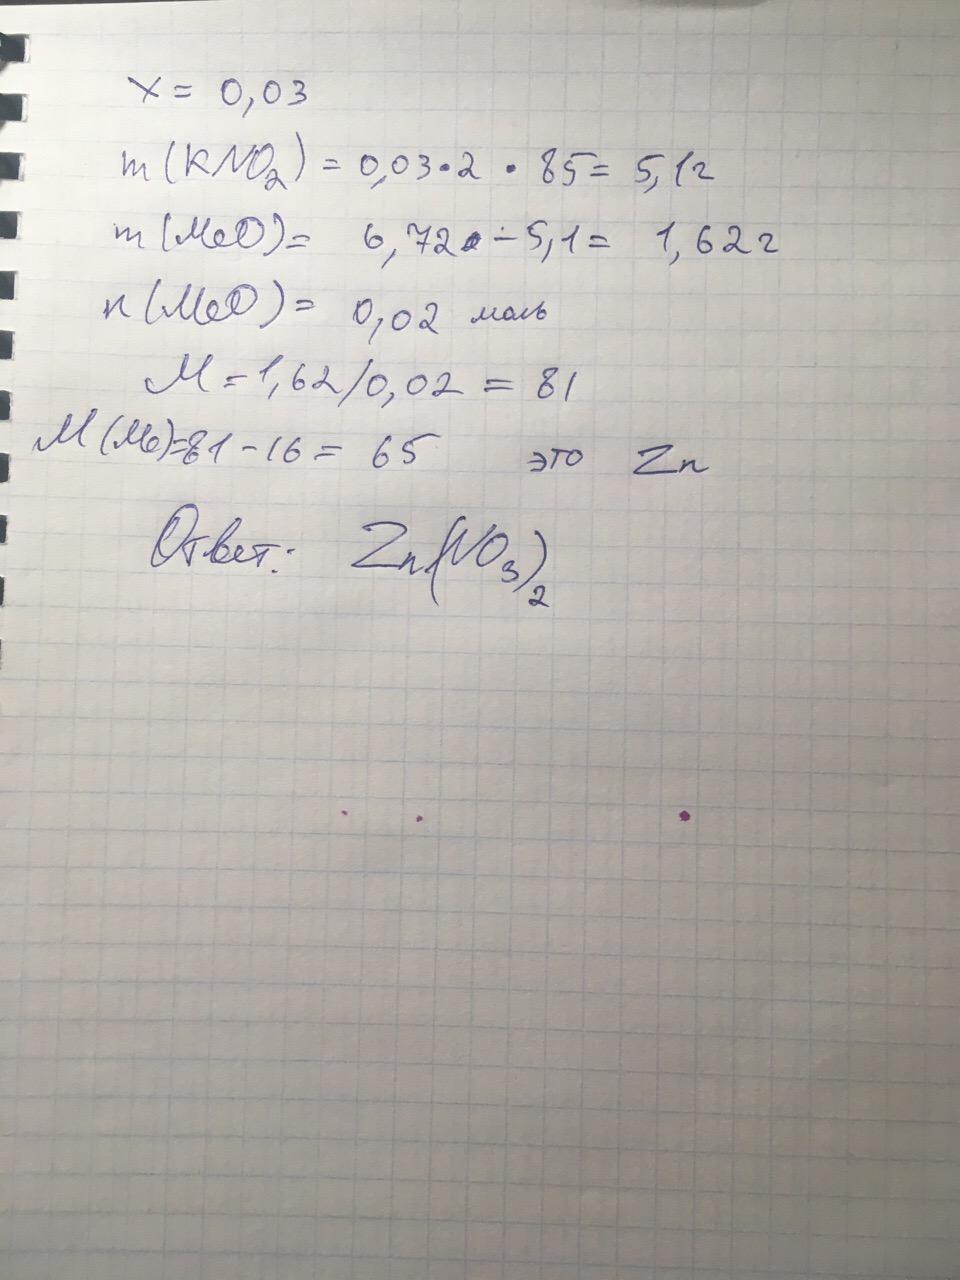 x = 0,03
m(KNO2) = 0,03·2 · 85 = 5,1г
m(MeO) = 6,72 - 5,1 = 1,62г
n(MeO) = 0,02 моль
M = 1,62/0,02 = 81
M(Me)=81-16 = 65 это Zn
Ответ: Zn(NO3)2